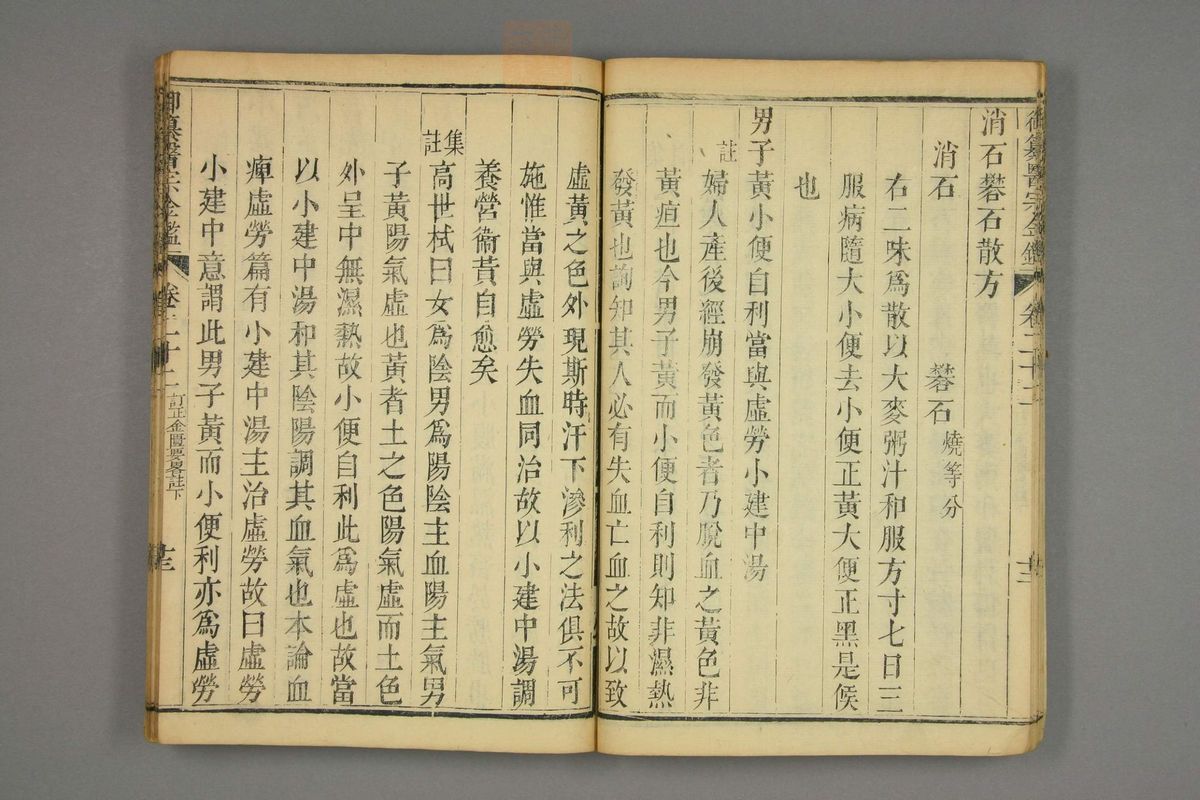 消石礬石散方
消石 礬石燒等分
右二味爲散以大麥粥汁和服方寸七日三
服病隨大小便去小便正黃大便正黑是候
也
男子黃小便自利當與虛勞小建中湯
註婦人產後經崩發黃色者乃脫血之黃色非
黃疸也今男子黃而小便自利則知非濕熱
發黃也詢知其人必有失血亡血之故以致
虛黃之色外現斯時汗下滲利之法俱不可
施惟當與虛勞失血同治故以小建中湯調
養營衞黃自愈矣
集註高世栻曰女爲陰男爲陽陰主血陽主氣男
子黃陽氣虛也黃者土之色陽氣虛而土色
外呈中無濕熱故小便自利此爲虛也故當
以小建中湯和其陰陽調其血氣也本論血
痺虛勞篇有小建中湯主治虛勞故曰虛勞
小建中意謂此男子黃而小便利亦爲虛勞
御纂醫宗金鑑 卷二十二 訂正金匱要畧註下 十三